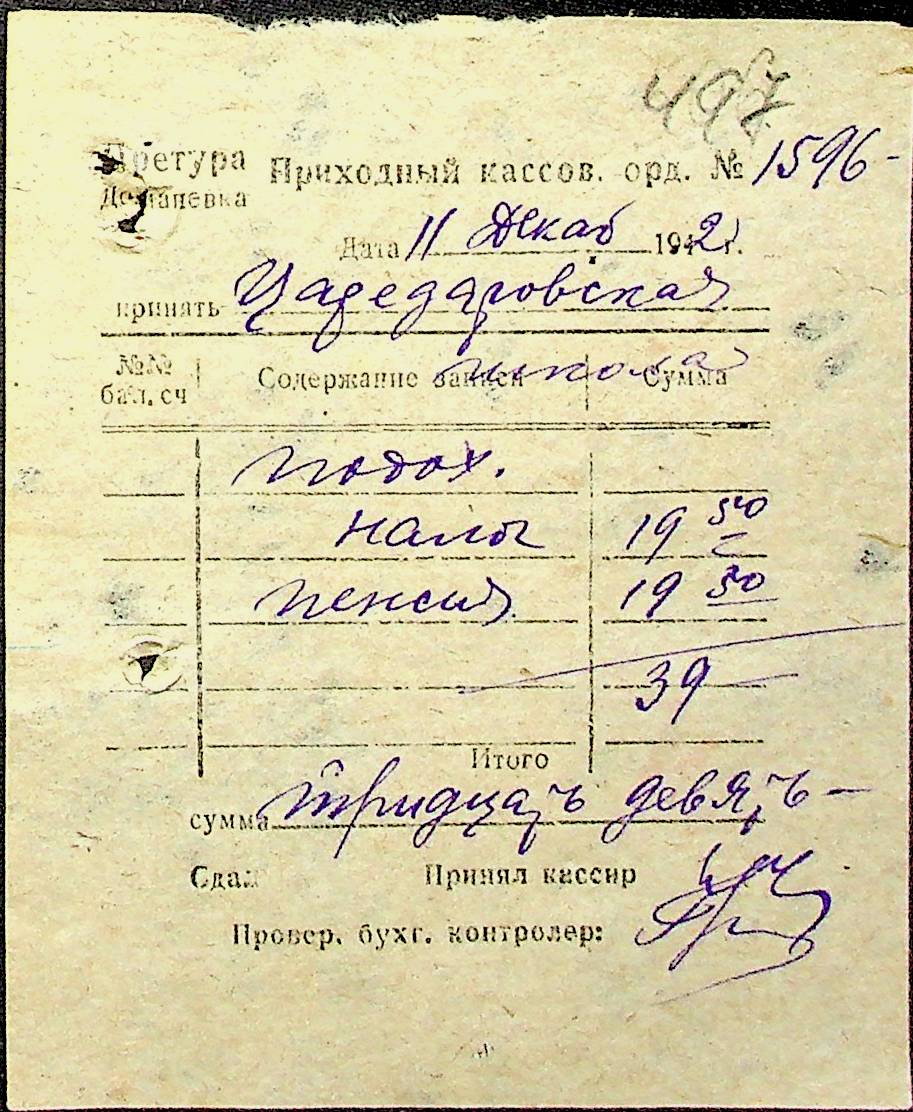 497
Претура Приходный кассов. орд. № 1596-
Доманевка
Дата 11 Декаб 1942 г.
принять Царедаровская
школа
№№ бал. сч Содержание записи Сумма
подох.
налог 19 50
пенсия 19 50
39
Итого
сумма тридцать девять —
Сдал Принял кассир
Провер. бухг. контролер: